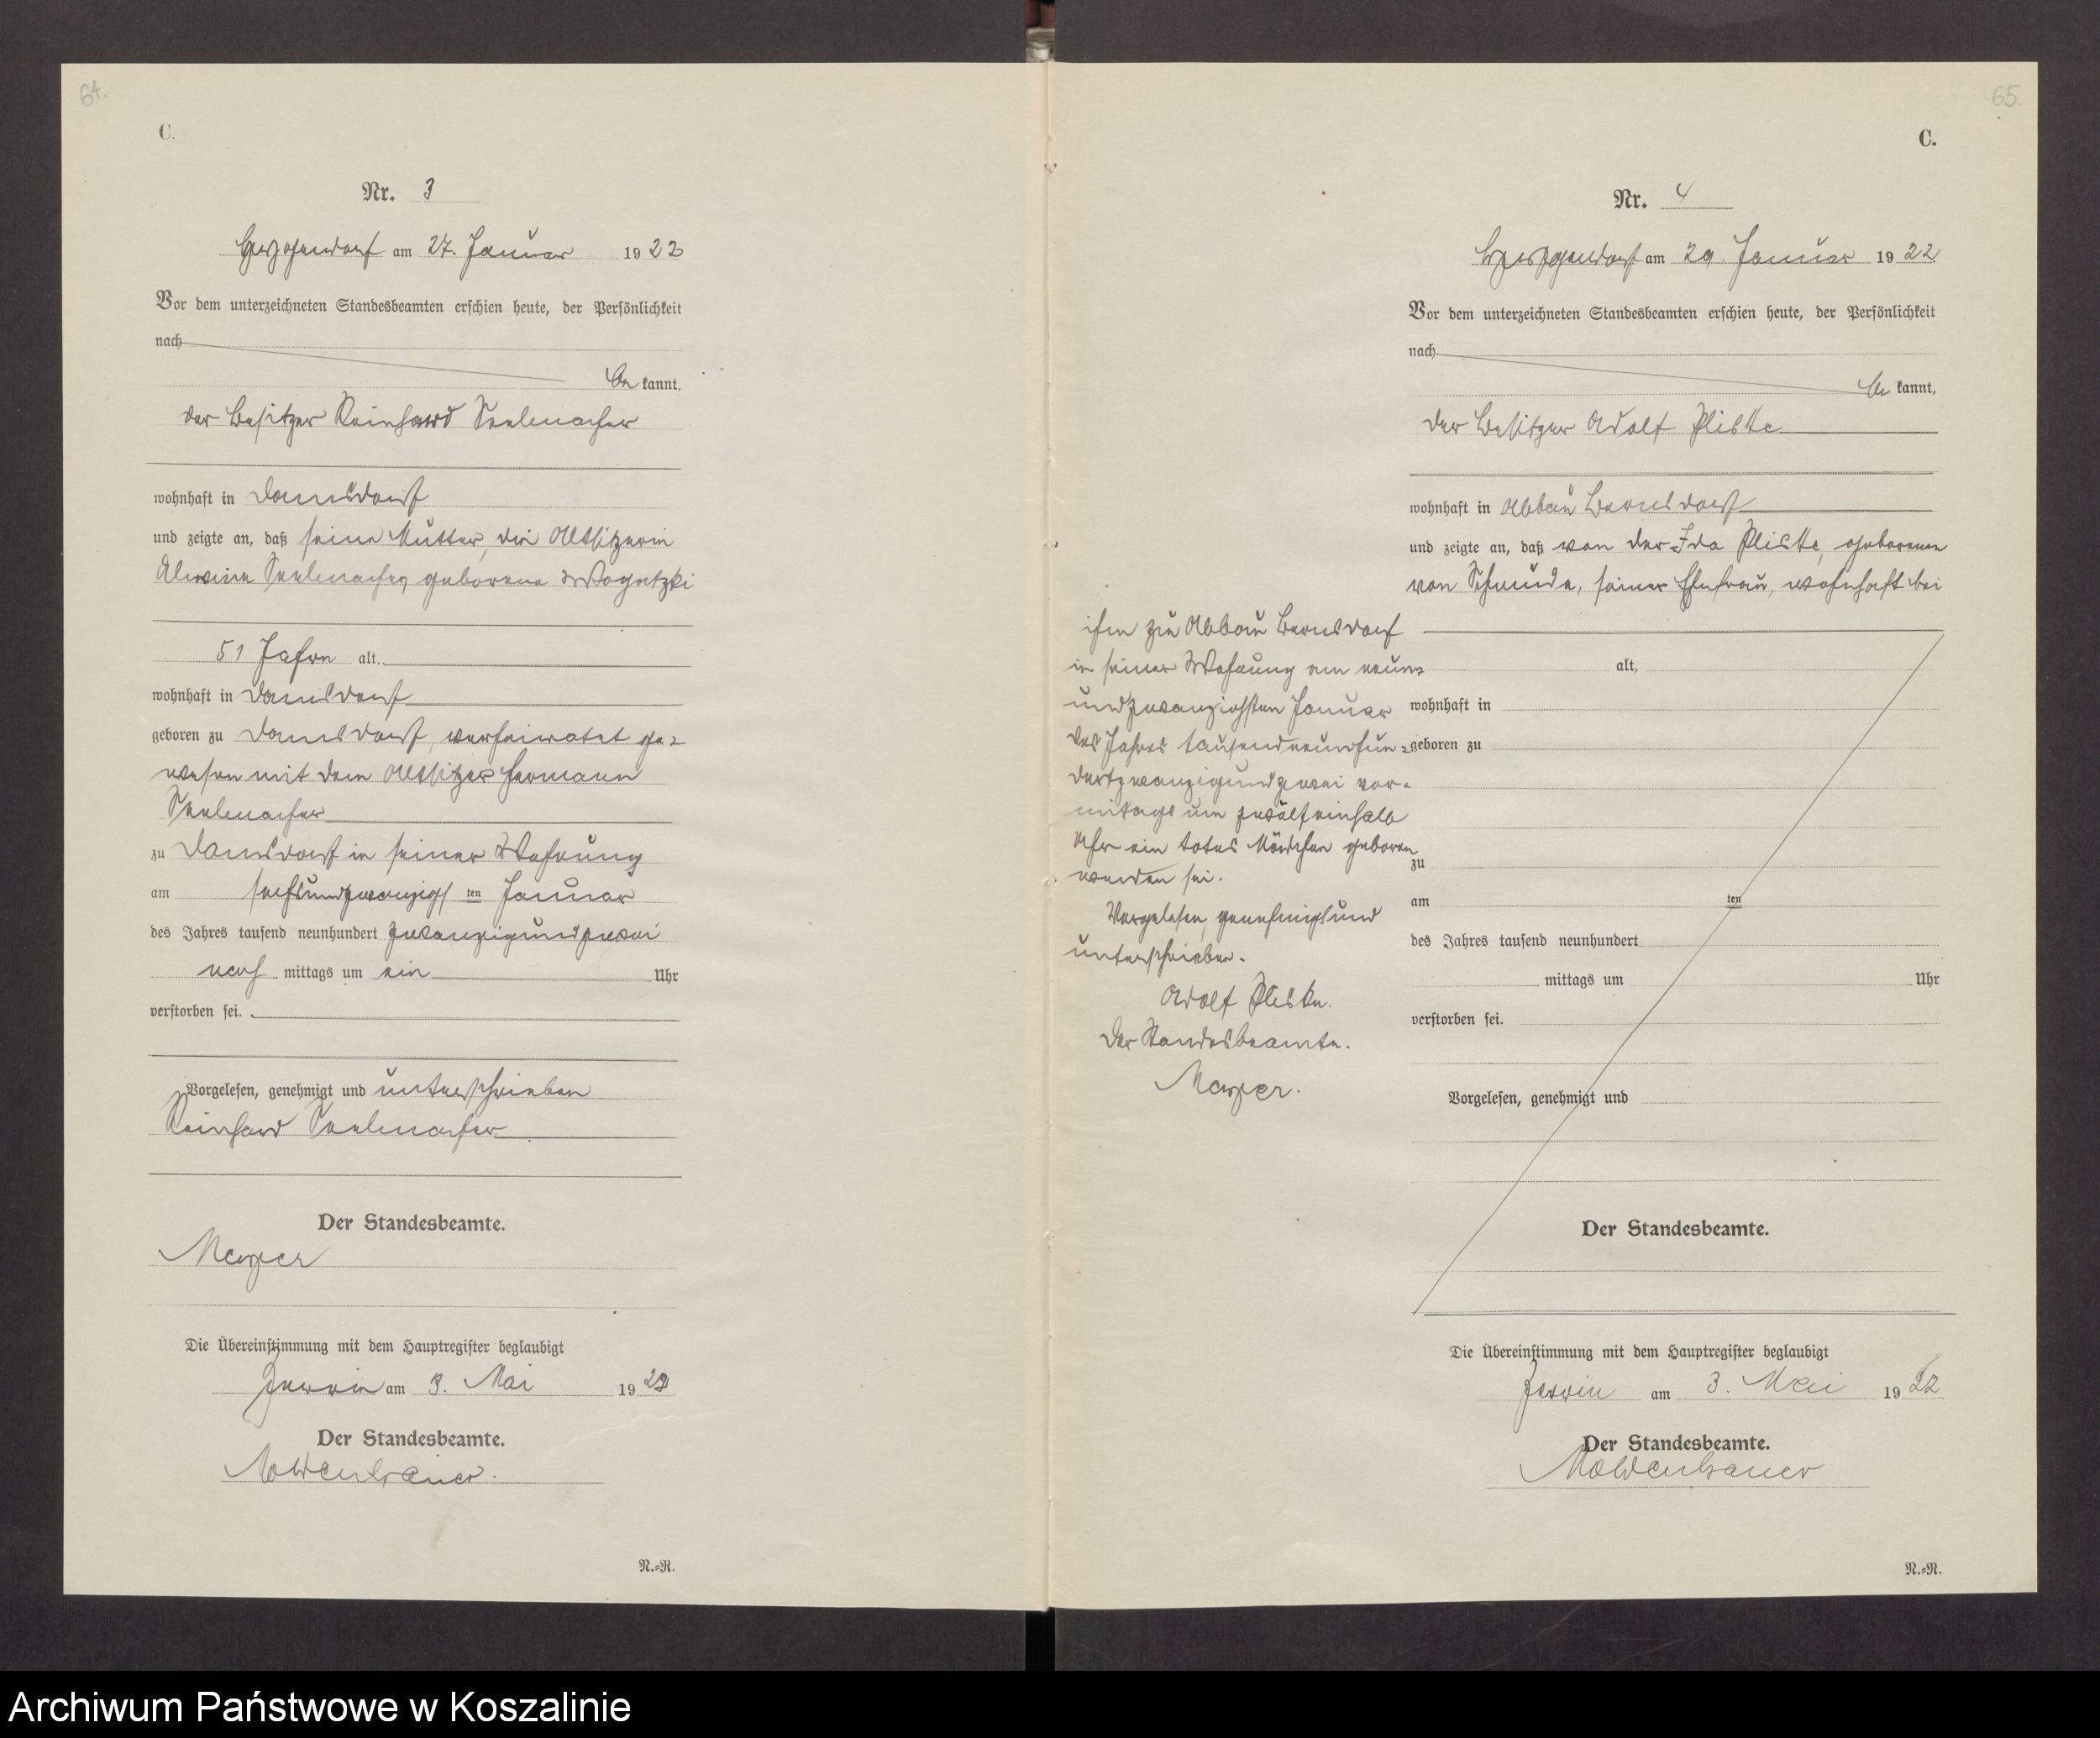 64.
C.
Nr. 3
am 27. Januar 1922
Vor dem unterzeichneten Standesbeamten erschien heute, der Persönlichkeit
nach
be kannt,
der Besitzer Reinhard Seelmacher
wohnhaft in Damsdorf
und zeigte an, daß seine Mutter, die Altsitzerin
Alwine Seelmacher, geborene Wogatzki
51 Jahre alt,
wohnhaft in Damsdorf
geboren zu Damsdorf, verheiratet ge-
wesen mit dem Altsitzer Hermann
Seelmacher
zu Damsdorf in seiner Wohnung
am sechsundzwanzigs ten Januar
des Jahres tausend neunhundert zwanzigundzwei
nach mittags um ein Uhr
verstorben sei.
Vorgelesen, genehmigt und unterschrieben
Reinhard Seelmacher
Der Standesbeamte.
Mayer
Die Übereinstimmung mit dem Hauptregister beglaubigt
am 3. Mai 19
Der Standesbeamte.
Moldenhauer.
N.=R.
65.
C.
Nr. 4
am 29. Januar 1922
Vor dem unterzeichneten Standesbeamten erschien heute, der Persönlichkeit
nach
be kannt,
der Besitzer Adolf Pliske
wohnhaft in Abbau Bernsdorf
und zeigte an, daß von der Ida Pliske, geborenen
von Schmude, seiner Ehefrau, wohnhaft bei
ihm zu Abbau Bernsdorf
in seiner Wohnung am neun-
undzwanzigsten Januar
des Jahres tausendneunhun-
dertzwanzigundzwei vor-
mittags um zwölfeinhalb
Uhr ein totes Mädchen geboren
worden sei.
Vorgelesen, genehmigt und
unterschrieben.
Adolf Pliske.
Der Standesbeamte.
Mayer.
alt,
wohnhaft in
geboren zu
zu
am ten
des Jahres tausend neunhundert
mittags um Uhr
verstorben sei.
Vorgelesen, genehmigt und
Der Standesbeamte.
Die Übereinstimmung mit dem Hauptregister beglaubigt
am 3. Mai 1922.
Der Standesbeamte.
Moldenhauer
N.=R.
Archiwum Państwowe w Koszalinie